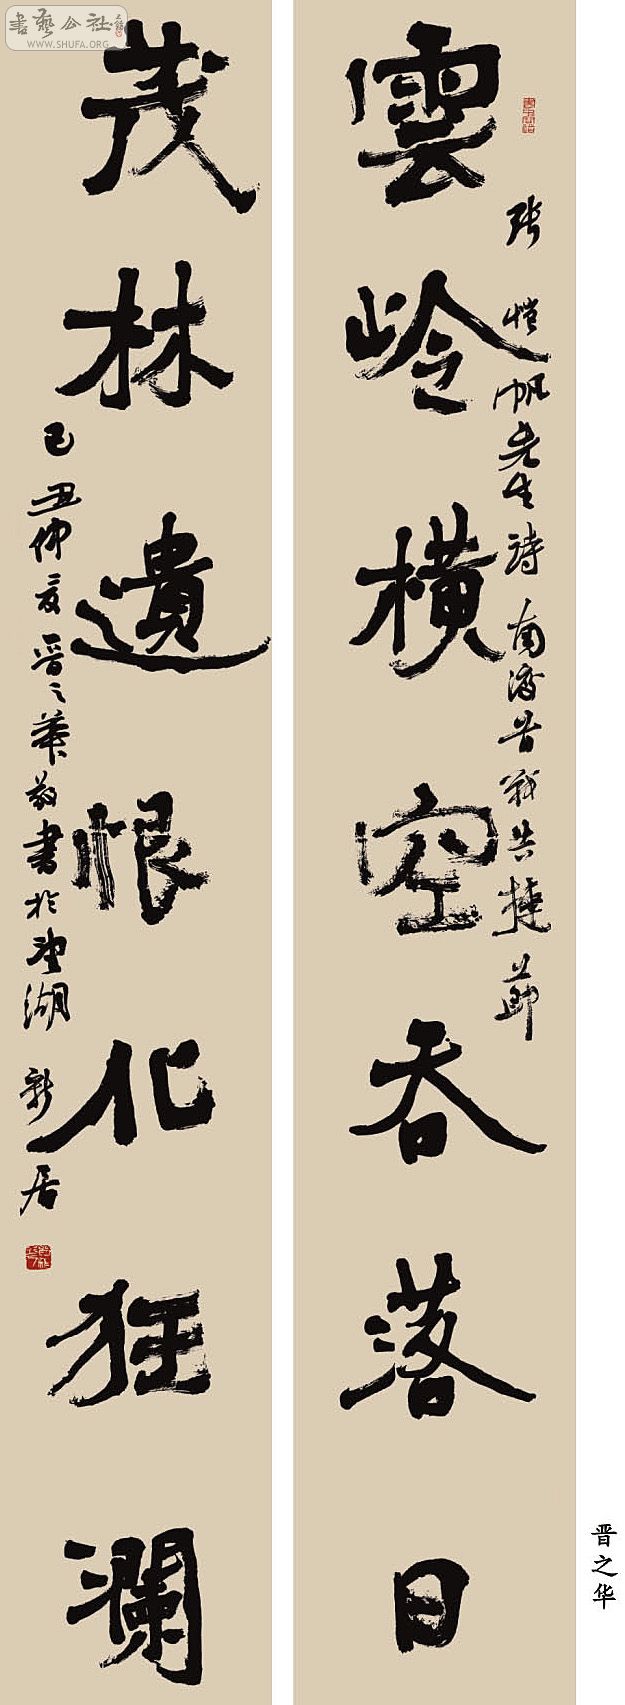 書藝公社
WWW.SHUFA.ORG
張愷帆先生詩南渡首戰告捷節
雲岭横空吞落日
茂林遺恨化狂瀾
己丑仲夏晋之華敬書於望湖新居
晋之华